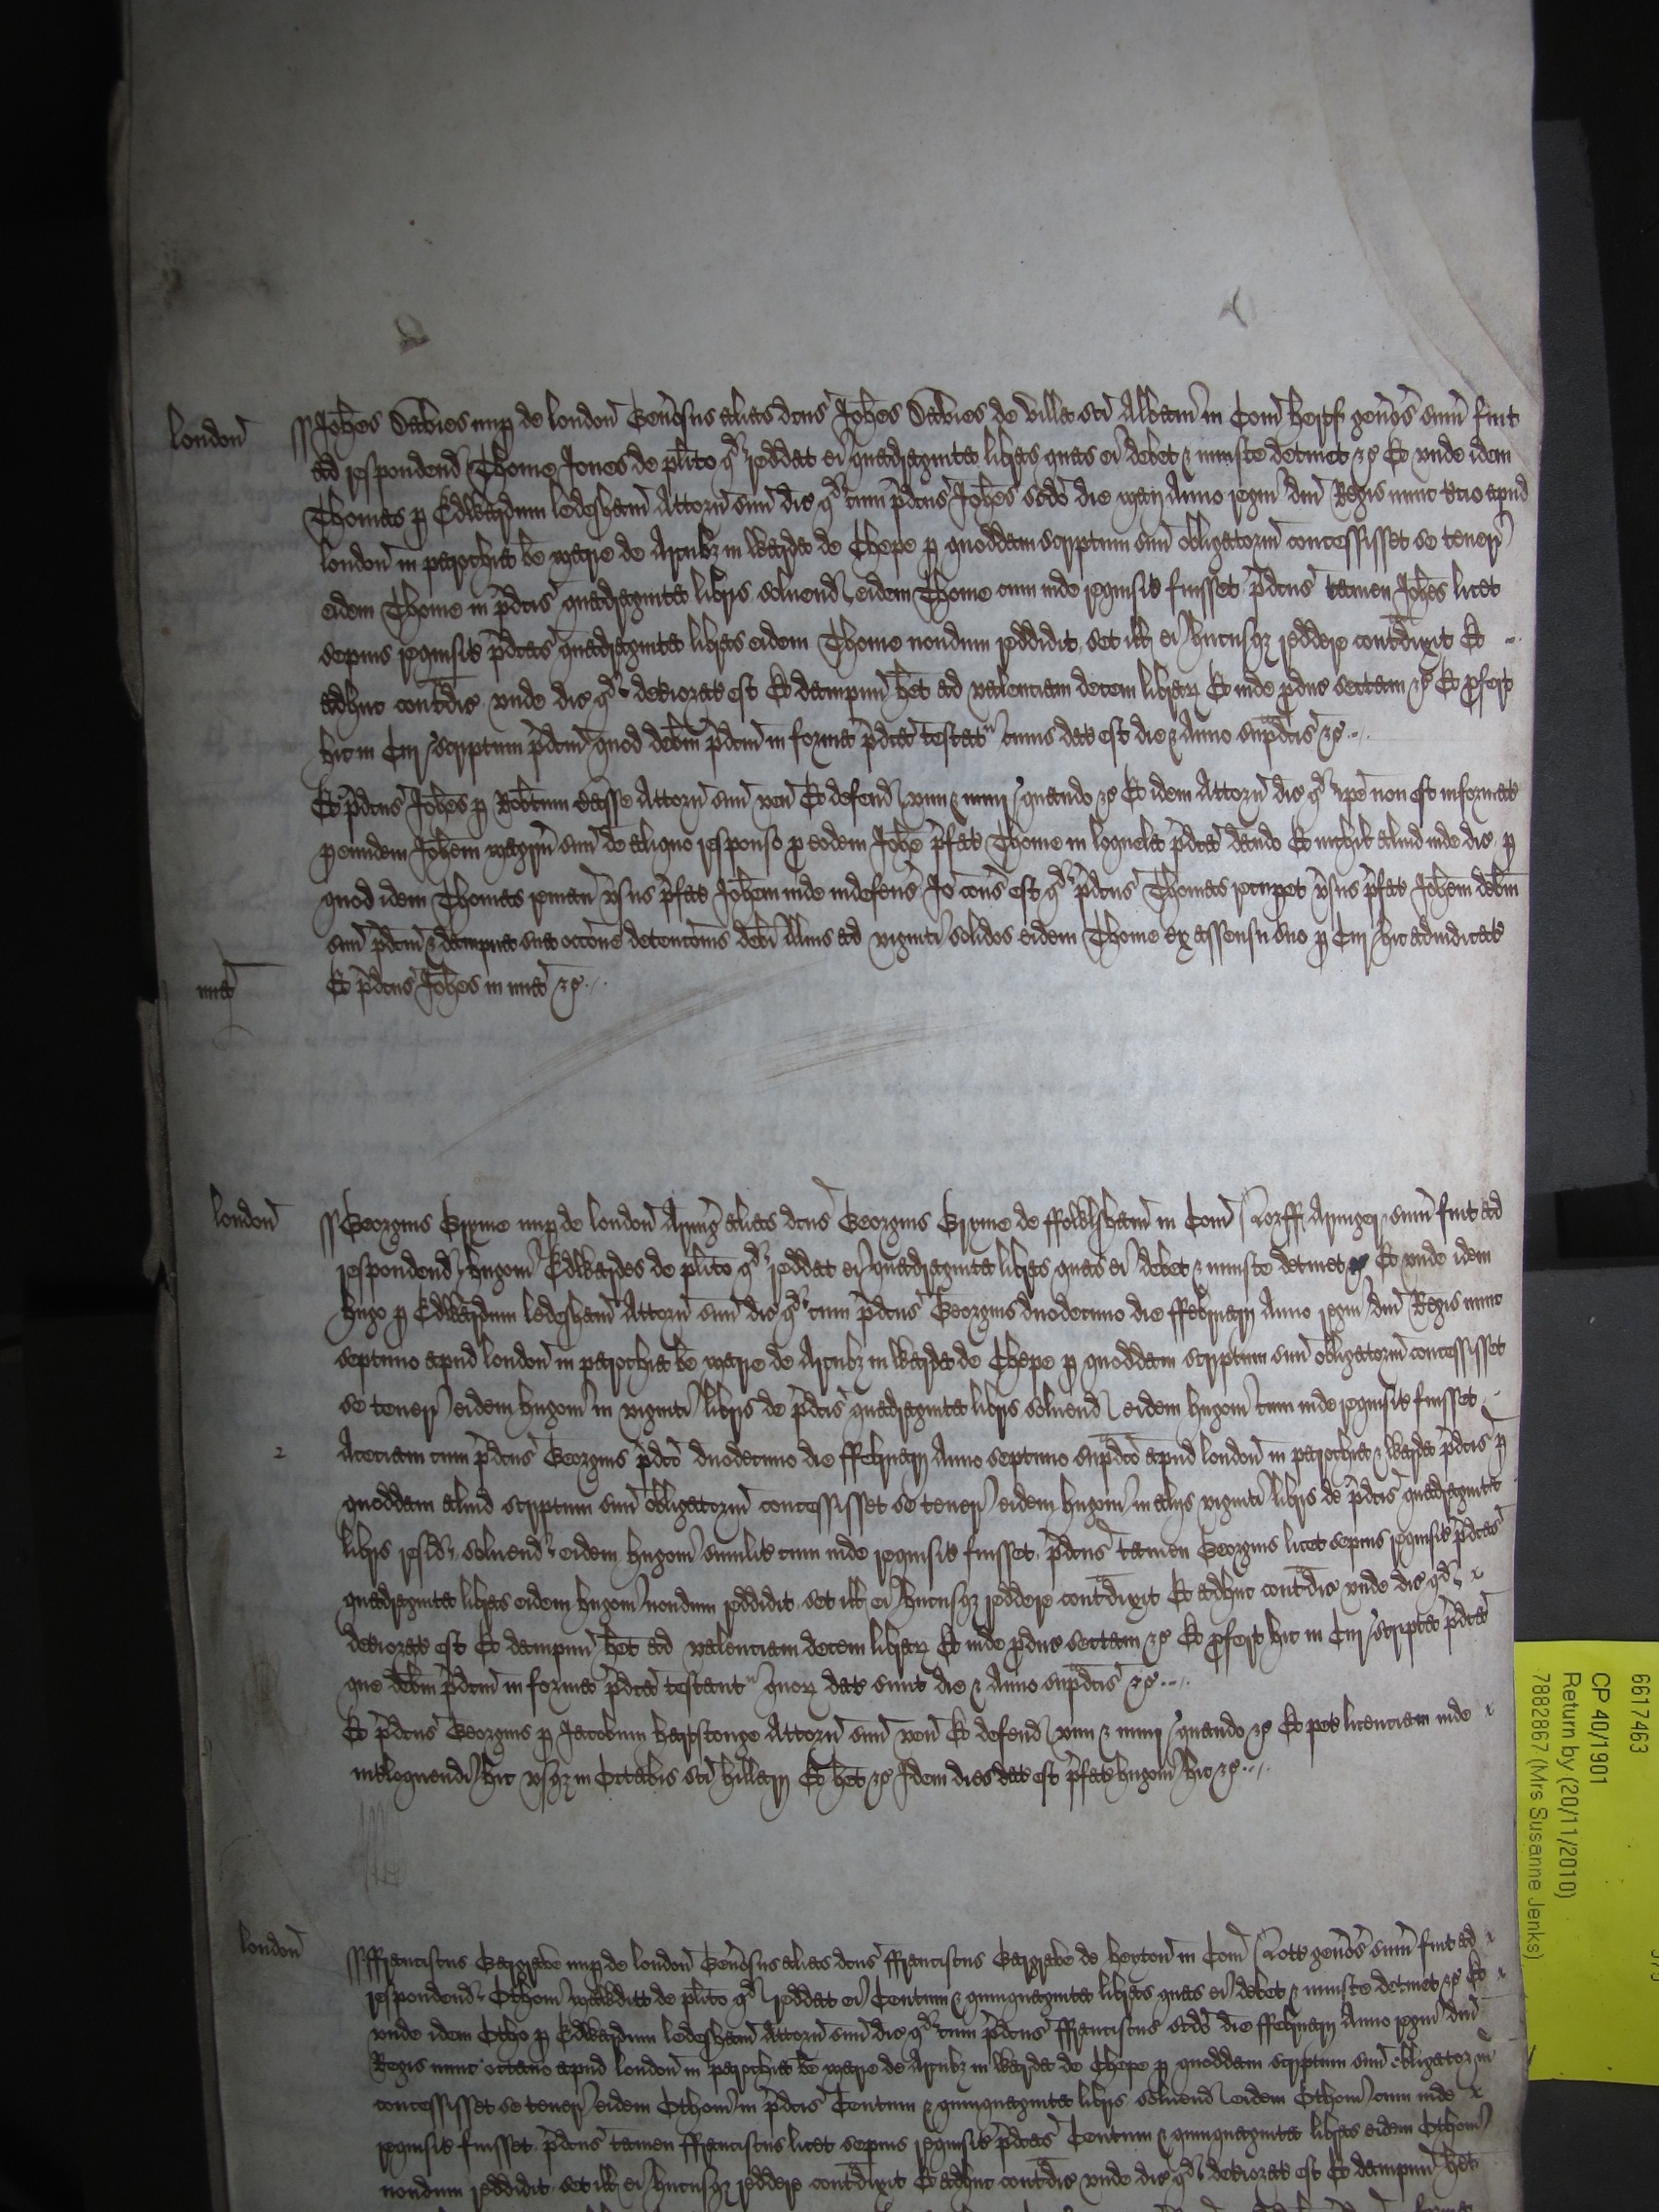 london
Johes Davies nup de london Genosus alias dcus Johes Davies de villa sci Albani in Com Hertf genos sum fuit
ad respondend Thome Jones de plito qd reddat ei quadraginta libras quas ei debet & iniuste detinet &c Et unde idem
Thomas p Edwardum ledesham Attorn suu dic qd cum pdcus Johes scdo die maij Anno regni dni Regis nunc apud
london in parochia be marie de Arcubz in warda de Chepe p quoddam scriptum suu obligatoriu concessisset se teneri
eidem Thome in pdcis quadraginta libris solvend eidem Thome cum inde requisit fuisset pdcus tamen Johes licet
sepius requisit pdcas quadraginta libras eidem Thome nondum reddidit set ill ei hucusqz reddere contradixit Et
adhuc contradic unde dic qd deteriorat est Et dampnu het ad valenciam decem librar Et inde pduc sectam &c Et pfert
hic in Cur scriptum pdcm quod debm pdcm in forma pdca testat cuius dat est die & Anno supradcis &c
Et pdcus Johes p Robtum Attorn suu ven Et defend vim & iniur quando &c Et idem Attorn dic qd ipe non est informat
p eundem Johem magrm suu de aliquo responso p eodem Johe pfat Thome in loquela pdca dando Et nichil aliud inde dic p
quod idem Thomas reman vsus pfat Johem inde indefens Io cons est qd pdcus Thomas recupet vsus pfat Johem debm
suu pdcm & dampna sua occone detencois debi illius ad viginti solidos eidem Thome ex assensu suo p Cur hic adiudicat
mia
Et pdcus Johes in mia &c
london
Georgius Gryme nup de london Armig alias dcus Georgius Gryme de in Com Norff Armiger sum fuit ad
respondend Hugoni Edwardes de plito qd reddat ei quadraginta libras quas ei debet & iniuste detinet Et unde idem
Hugo p Edwardum ledesham Attorn suu dic qd cum pdcus Georgius duodecimo die ffebruarij Anno regni dni Regis nunc
septimo apud london in parochia be marie de Arcubz in warda de Chepe p quoddam scriptum suu obligatoriu concessisset
se teneri eidem Hugoni in viginti libris de pdcis quadraginta libris solvend eidem Hugoni cum inde requisit fuisset
2
Aceciam cum pdcus Georgius pdco duodecimo die ffebruarij Anno septimo supradco apud london in parochia & warda pdcis p
quoddam aliud scriptum suu obligatoriu concessisset se teneri eidem Hugoni in aliis viginti libris de pdcis quadraginta
libris resid solvend eidem Hugoni similit cum inde requisit fuisset pdcus tamen Georgius licet sepius requisit pdcas
quadraginta libras eidem Hugoni nondum reddidit set ill ei hucusqz reddere contradixit Et adhuc contradic unde dic qd
deteriorat est Et dampnu het ad valenciam decem librar Et inde pduc sectam &c Et pfert hic in Cur scripta pdca
que debm pdcm in forma pdca testant quor dat sunt die & Anno supradcis &c
Et pdcus Georgius p Jacobum Harstonge Attorn suu ven Et defend vim & iniur quando &c Et pet licenciam inde
intloquendi hic usqz in Octabis sci Hillarij Et het &c Idem dies dat est pfat Hugoni hic &c
london
ffranciscus Gargrave nup de london Genosus alias dcus ffranciscus Gargrave de in Com Nott genos sum fuit ad
respondend Othoni de plito qd reddat ei Centum & quinquaginta libras quas ei debet & iniuste detinet &c Et
unde idem Otho p Edwardum ledesham Attorn suu dic qd cum pdcus ffranciscus scdo die ffebruarij Anno regni dni
Regis nunc octavo apud london in parochia be marie de Arcubz in warda de Chepe p quoddam scriptum suu obligatoriu
concessisset se teneri eidem Othoni in pdcis Centum & quinquaginta libris solvend eidem Othoni cum inde
requisit fuisset pdcus tamen ffranciscus licet sepius requisit pdcas Centum & quinquaginta libras eidem Othoni
nondum reddidit set ill ei hucusqz reddere contradixit Et adhuc contradic unde dic qd deteriorat est Et dampnu het
6617463
CP 40/1901
Return by (20/11/2010)
7882867 (Mrs Susanne Jenks)